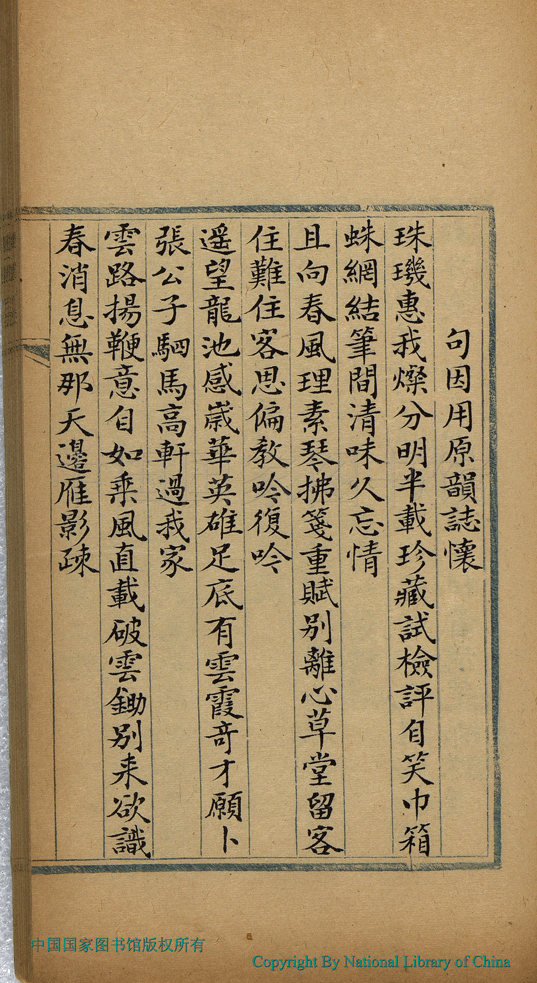 句因用原韻誌懷
珠璣惠我燦分明半載珍藏試檢評自笑巾箱
蛛網結筆間清味久忘情
且向春風理素琴拂箋重賦別離心草堂留客
住難住客思偏教吟復吟
遥望龍池感歲華英雄足底有雲霞奇才願卜
張公子駟馬高軒過我家
雲路揚鞭意自如乘風直載破雲鋤別来欲識
春消息無那天邊雁影疎
中国国家图书馆版权所有
Copyright By National Library of China